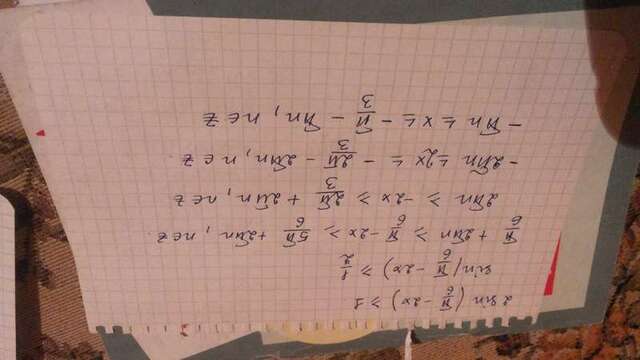 2 sin (π/6 - 2x) ≥ 1
sin (π/6 - 2x) ≥ 1/2
π/6 + 2πn ≥ π/6 - 2x ≥ 5π/6 + 2πn, n∈z
2πn ≥ -2x ≥ 2π/3 + 2πn, n∈z
-2πn ≤ 2x ≤ -2π/3 - 2πn, n∈z
-πn ≤ x ≤ -π/3 - πn, n∈z